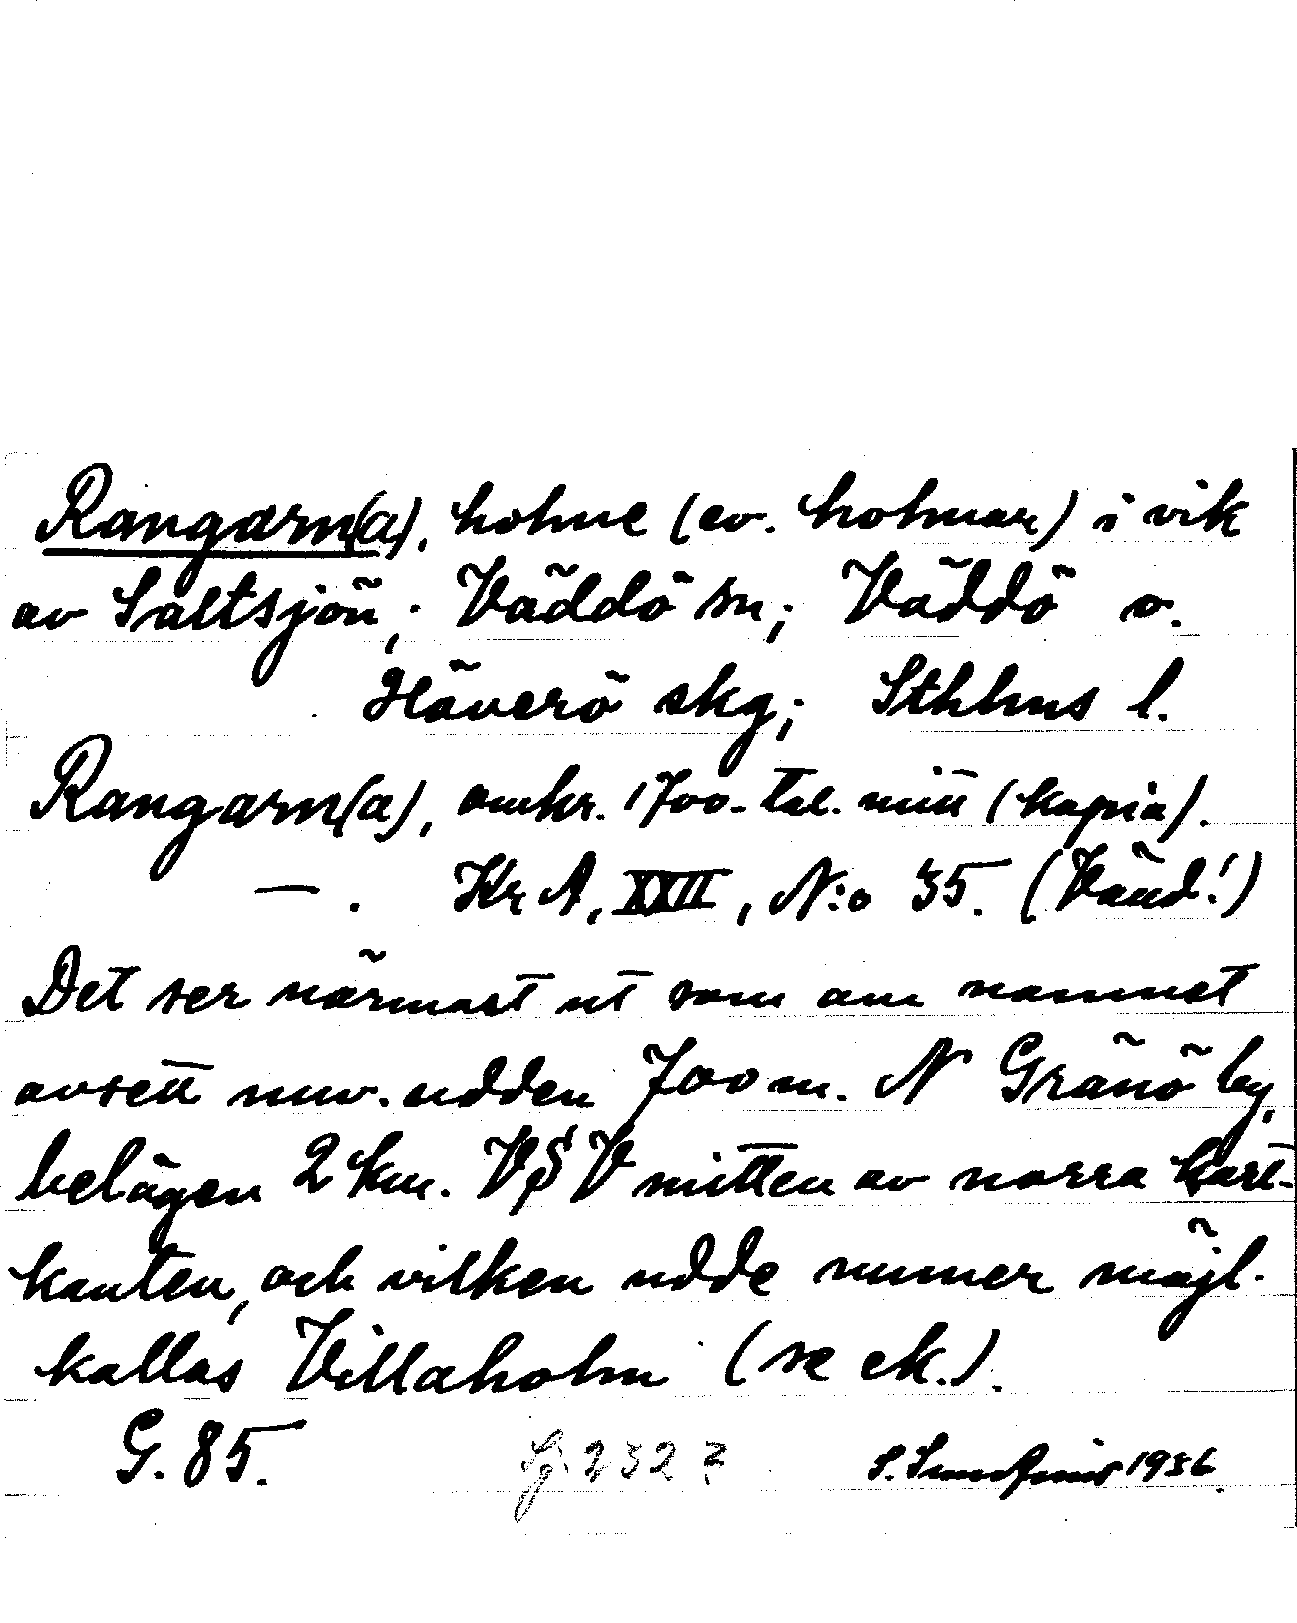 Rangarn(a), holme (ev. holmar) i vik
av Saltsjön; Väddö sn; Väddö o.
Häverö skg; Sthlms l.
Rangarn(a), omkr. 1700-tal. mitt (kopia).
—. Kr A, XXII, N:o 35. (Vänd!)
Det ser närmast ut som om namnet
avsett nuv. udden 700 m. N Gränö by,
belägen 2 km. VSV mitten av norra kart-
kanten, och vilken udde numer möjl.
kallas Villaholm (se ek.).
G. 85. Sg. 232 ? S. 1936